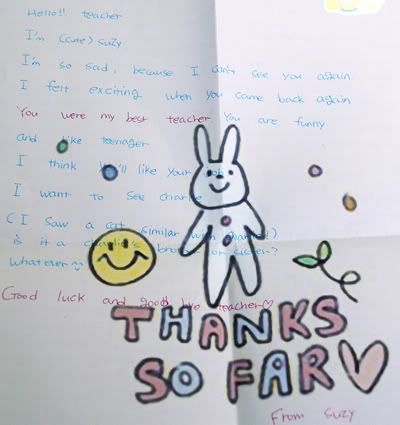 Hello!! teacher
I'm (cute) Suzy
I'm so sad, because I can't see you again
I felt exciting when you came back again
You were my best teacher You are funny
and like teenager
I think like your
I want to see
(I saw a cat similar with
is it a or sister?
whatever
Good luck and good bye teacher♡
THANKS
SO FAR♡
From Suzy